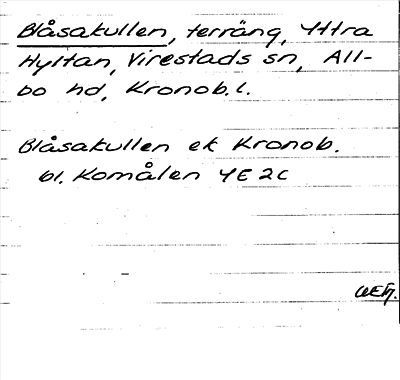 Blåsakullen, terräng, Yttra
Hyltan, Virestads sn, All-
bo hd, Kronob. l.
Blåsakullen ek Kronob.
bl. Komålen 4E 2c